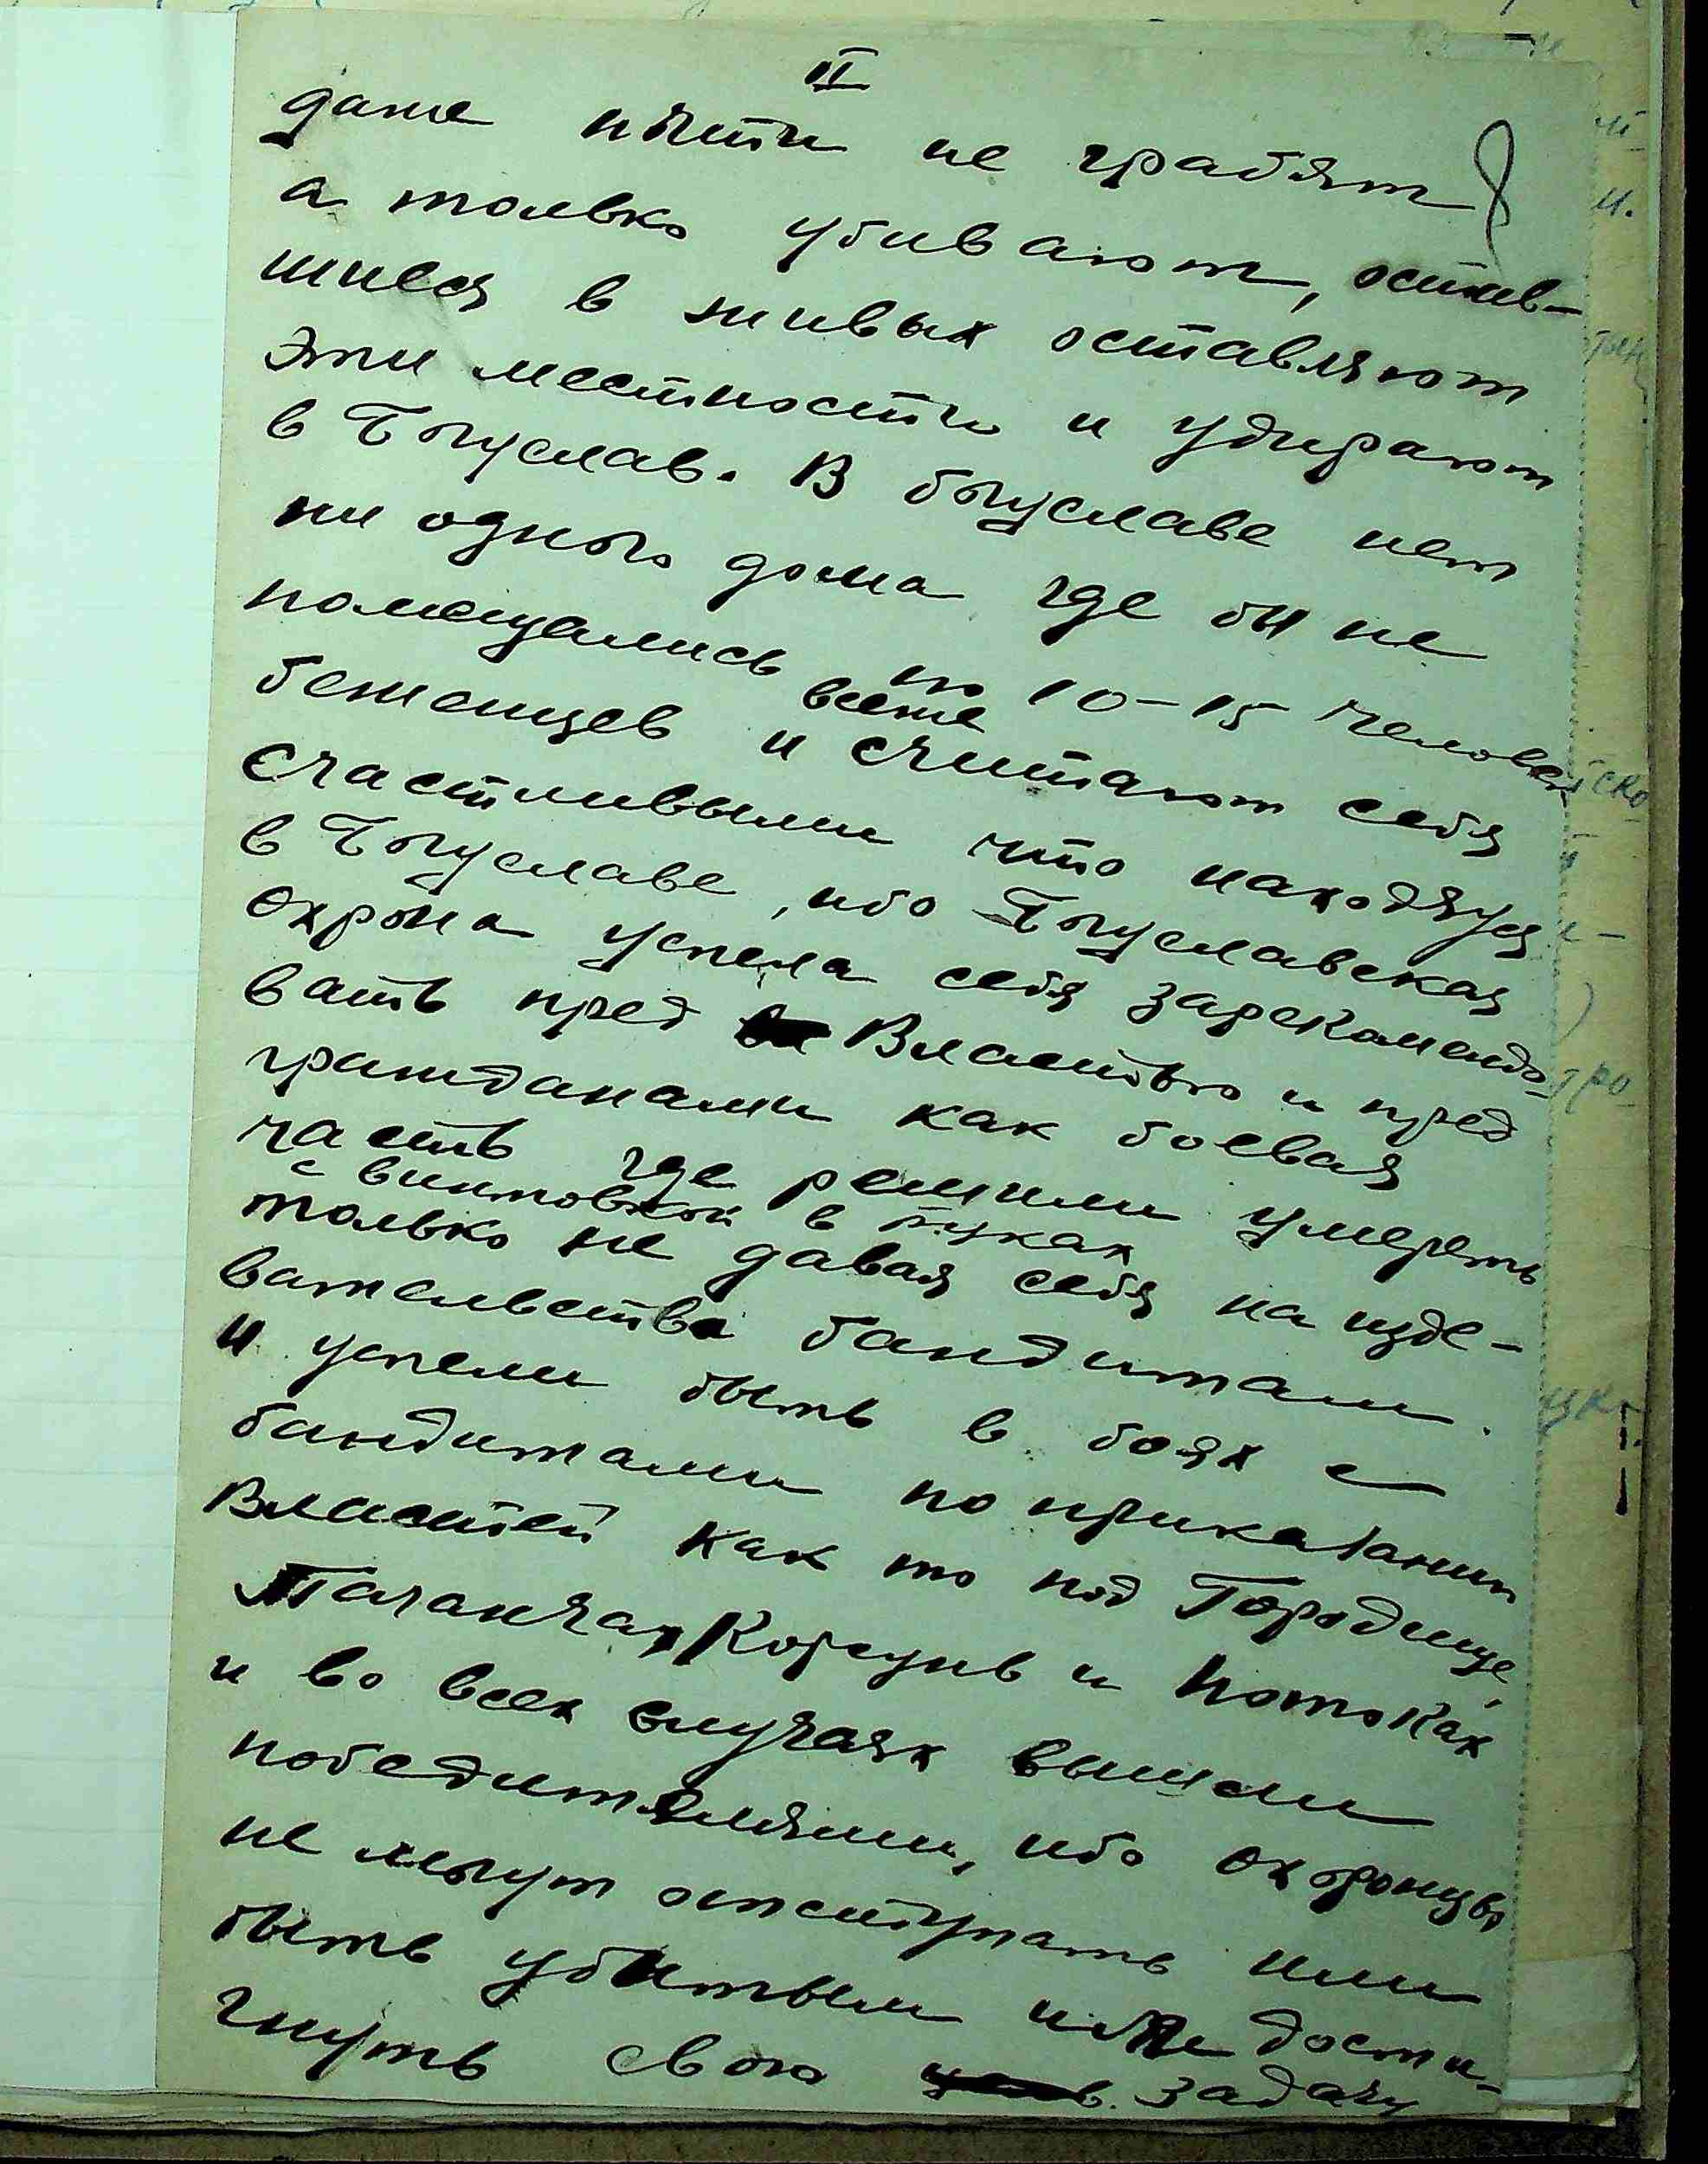 II
даже почти не грабят
а только убивают, остав-
шиеся в живых оставляют
эти местности и удирают
в Богуслав. В богуславе нет
ни одного дома где бы не
помещались по 10-15 человек
всеже
беженцев и считают себя
счастливыми что находятся
в Богуславе, ибо Богуславская
охрона успела себя зарекомендо-
вать пред Властью и пред
гражданами как боевая
часть где решили умереть
с винтовкой в руках
только не давая себя на изде-
вательства бандитам
и успели быть в боях с
бандитами по приказании
Властей как то под Городище,
Таганчах, Корсунь и Потоках
и во всех случаях вышли
победителями, ибо охронцы
не могут отступать или
быть убитыми или дости-
гнуть свою задачу